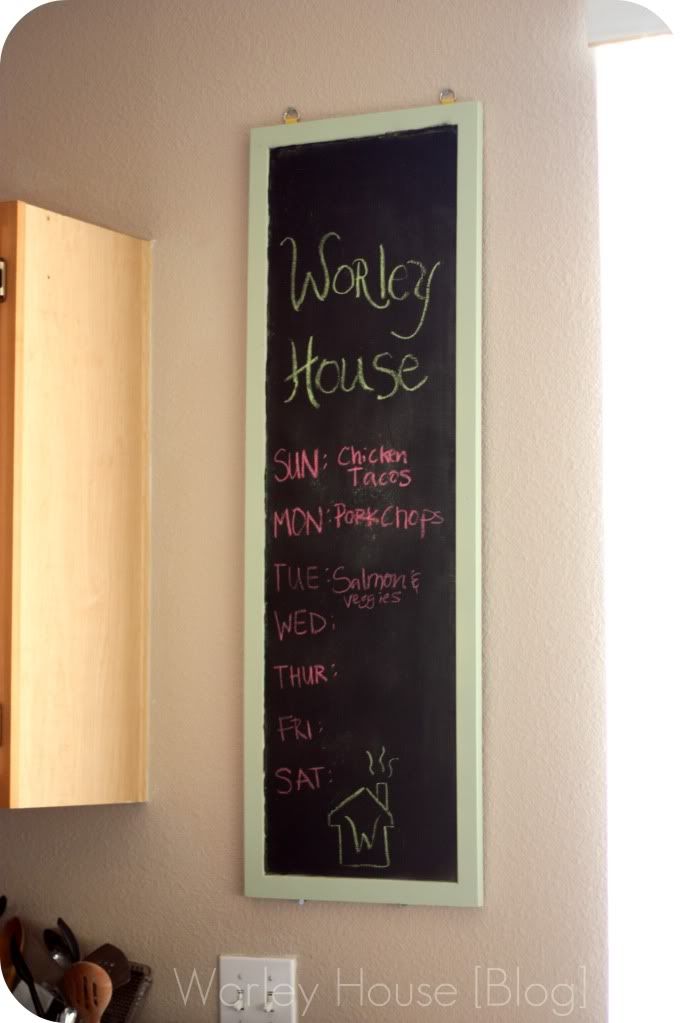 Worley
House
SUN: Chicken
Tacos
MON: Pork Chops
TUE: Salmon &
veggies
WED:
THUR:
FRI:
SAT:
W
Worley House [Blog]